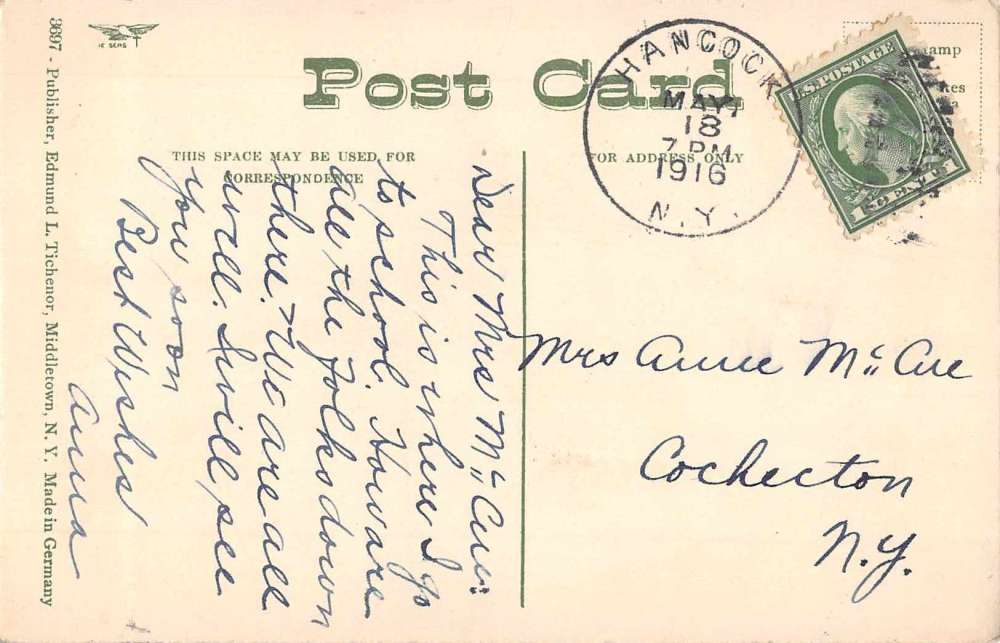 Post Card
THIS SPACE MAY BE USED FOR
CORRESPONDENCE
FOR ADDRESS ONLY
HANCOCK
MAY
18
7 PM
1916
N.Y.
U.S. POSTAGE
Dear Mrs Mc Cue:
This is where I go
to school. How are
all the folks down
there? We are all
well. I will see
you soon
Best Wishes
Anna
Mrs Anne Mc Cue
Cochecton
N.Y.
3697 - Publisher, Edmund L. Tichenor, Middletown, N. Y. Made in Germany